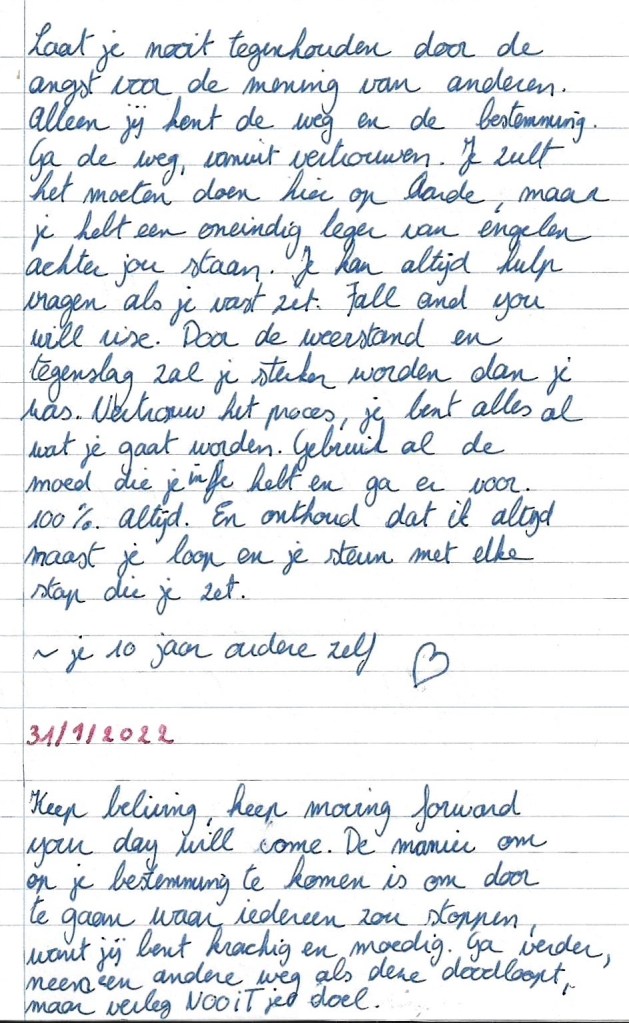 Laat je nooit tegenhouden door de
angst voor de mening van anderen.
Alleen jij kent de weg en de bestemming.
Ga de weg, vanuit vertrouwen. Je zult
het moeten doen hier op Aarde, maar
je hebt een oneindig leger van engelen
achter jou staan. Je kan altijd hulp
vragen als je vast zit. Fall and you
will rise. Door de weerstand en
tegenslag zal je sterker worden dan je
was. Vertrouw het proces, je bent alles al
wat je gaat worden. Gebruik al de
moed die je in je hebt en ga er voor.
100%. Altijd. En onthoud dat ik altijd
naast je loop en je steun met elke
stap die je zet.
~ je 10 jaar oudere zelf ♡
31/1/2022
Keep beliving, keep moving forward
your day will come. De manier om
op je bestemming te komen is om door
te gaan waar iedereen zou stoppen,
want jij bent krachtig en moedig. Ga verder,
neem een andere weg als deze doodloopt,
maar verleg NOOIT je doel.